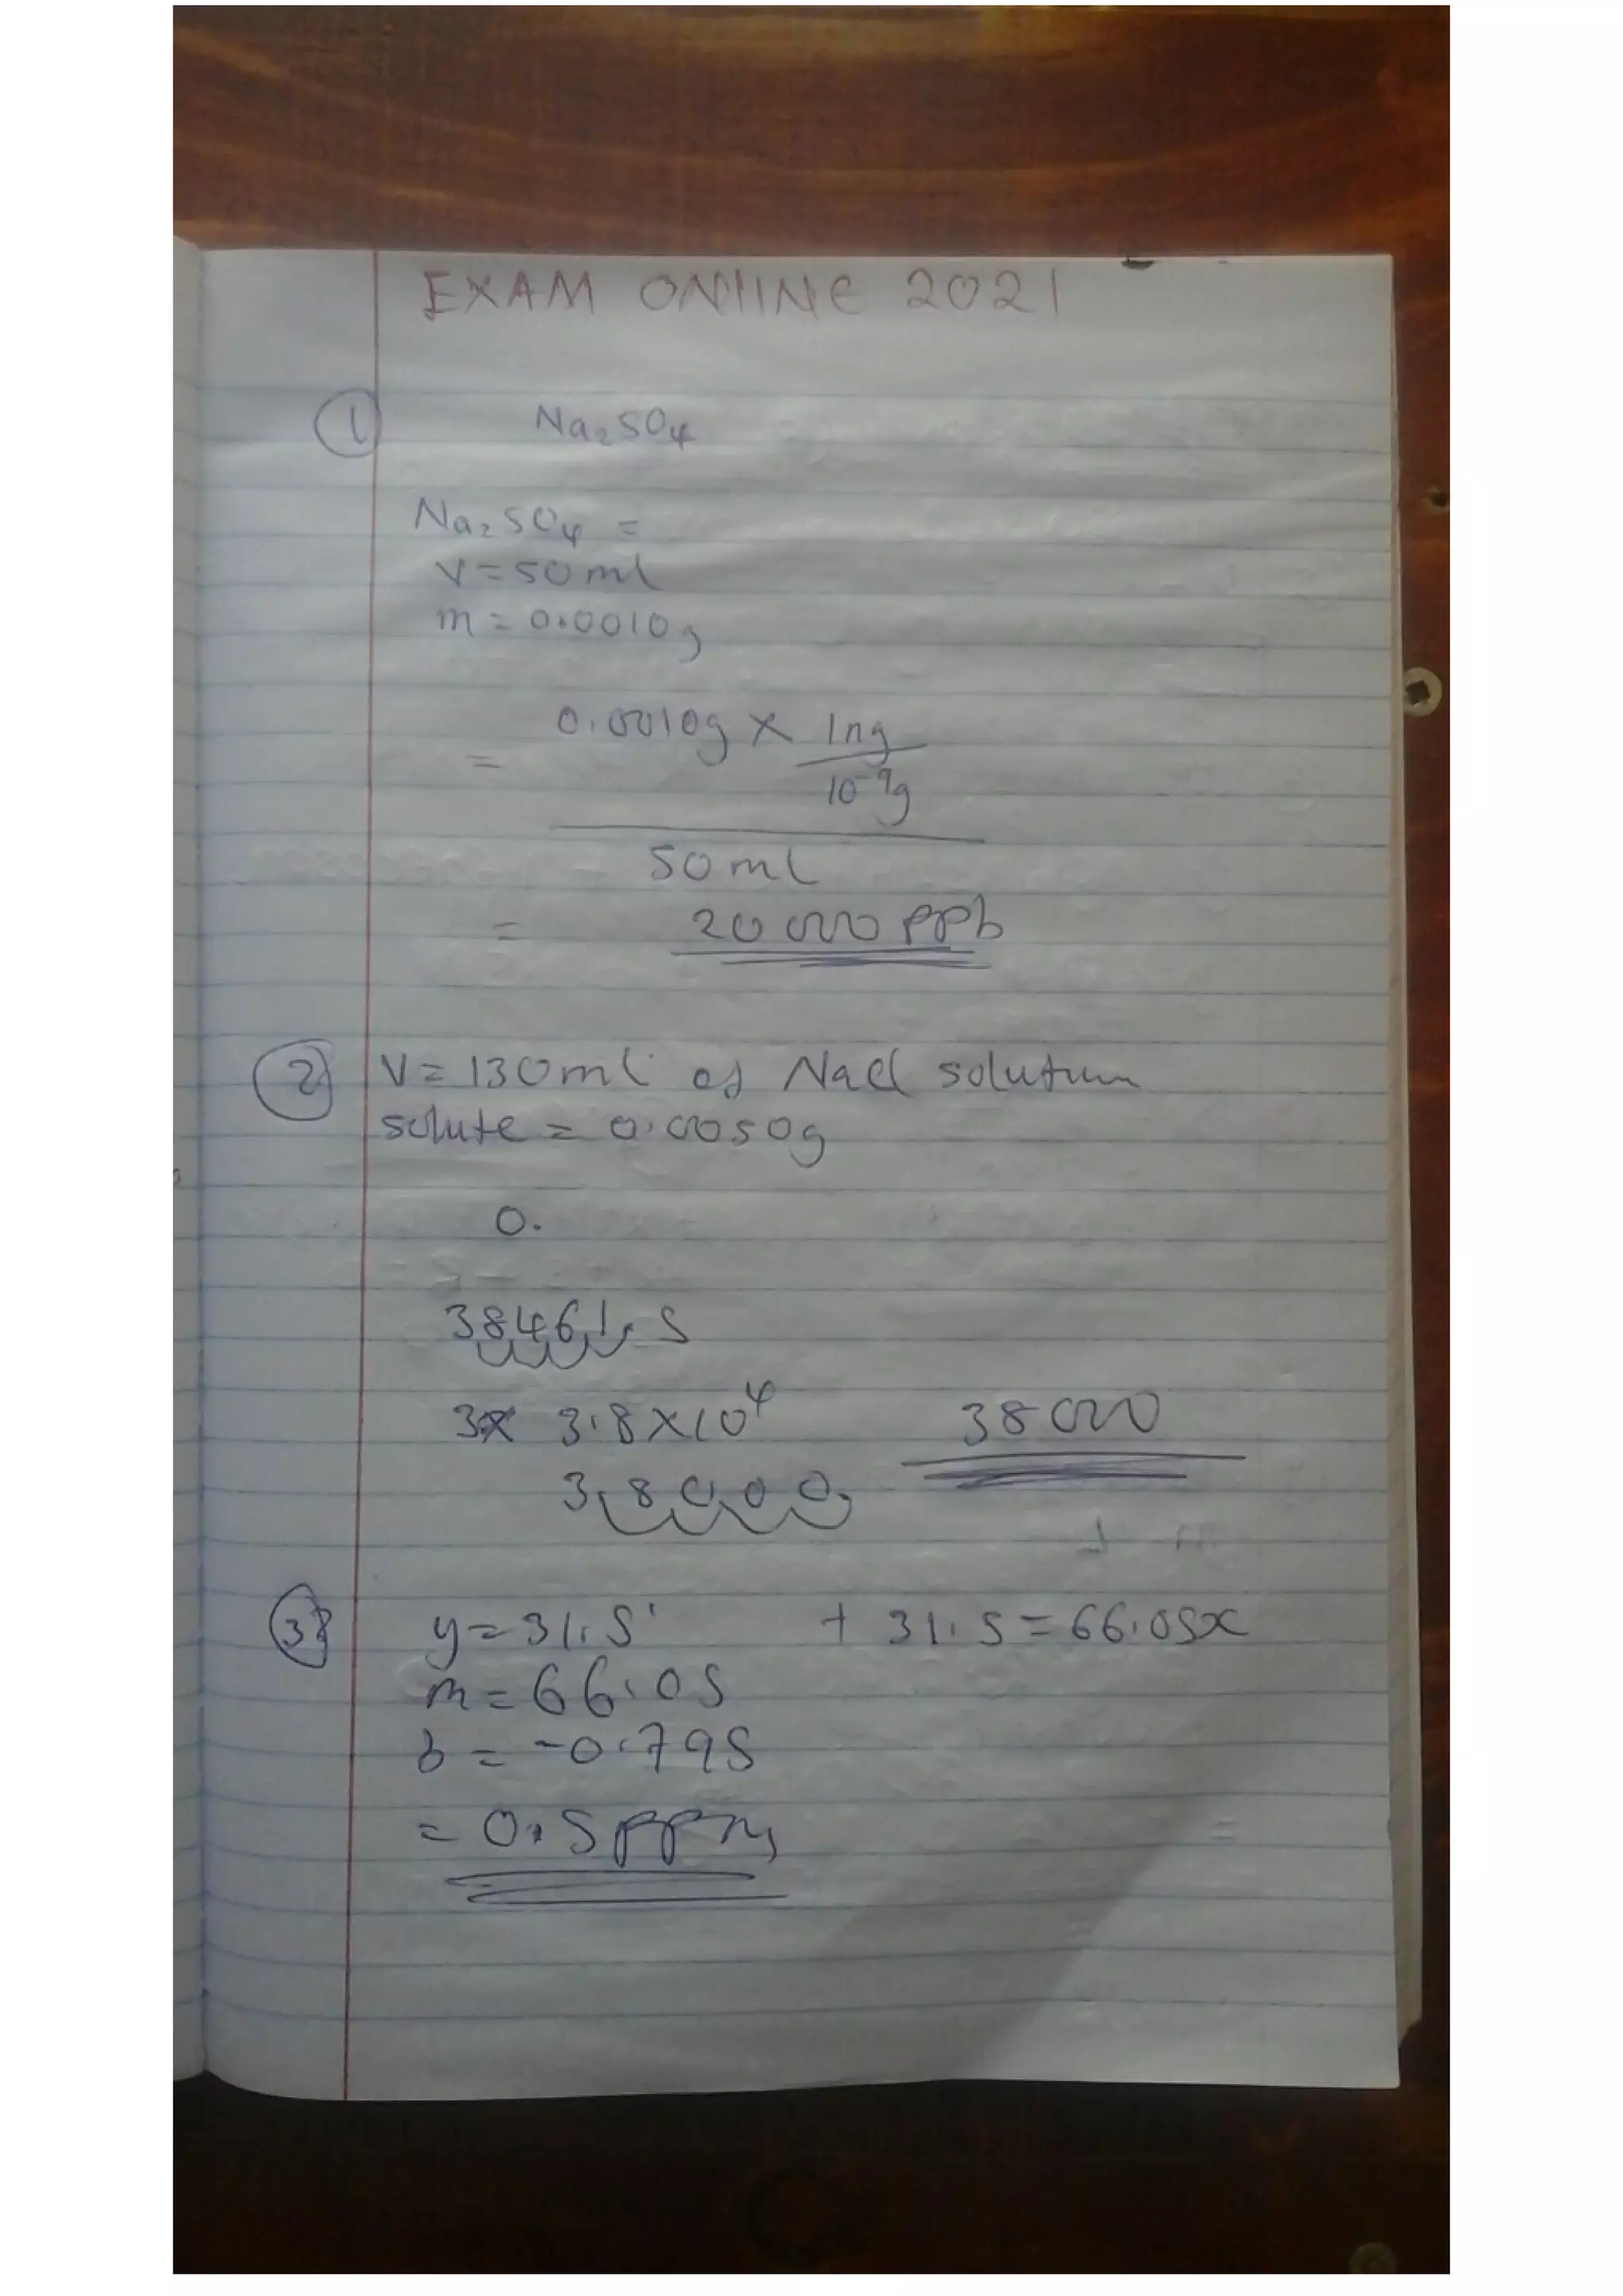 EXAM ONlINE 2021
1 Na₂SO₄
Na₂SO₄ =
V=50ml
m=0.0010g
0.0010g × 1ng
=
10⁻⁹g
50ml
= 20 000 ppb
2 V=130ml of NaCl solution
solute = 0.0050g
0.
38461.5
3x 3.8×10⁴ 38000
3,8000,
3 y=31.5 + 31.5=66.05x
m=66.05
b=-0.795
= 0.5ppm